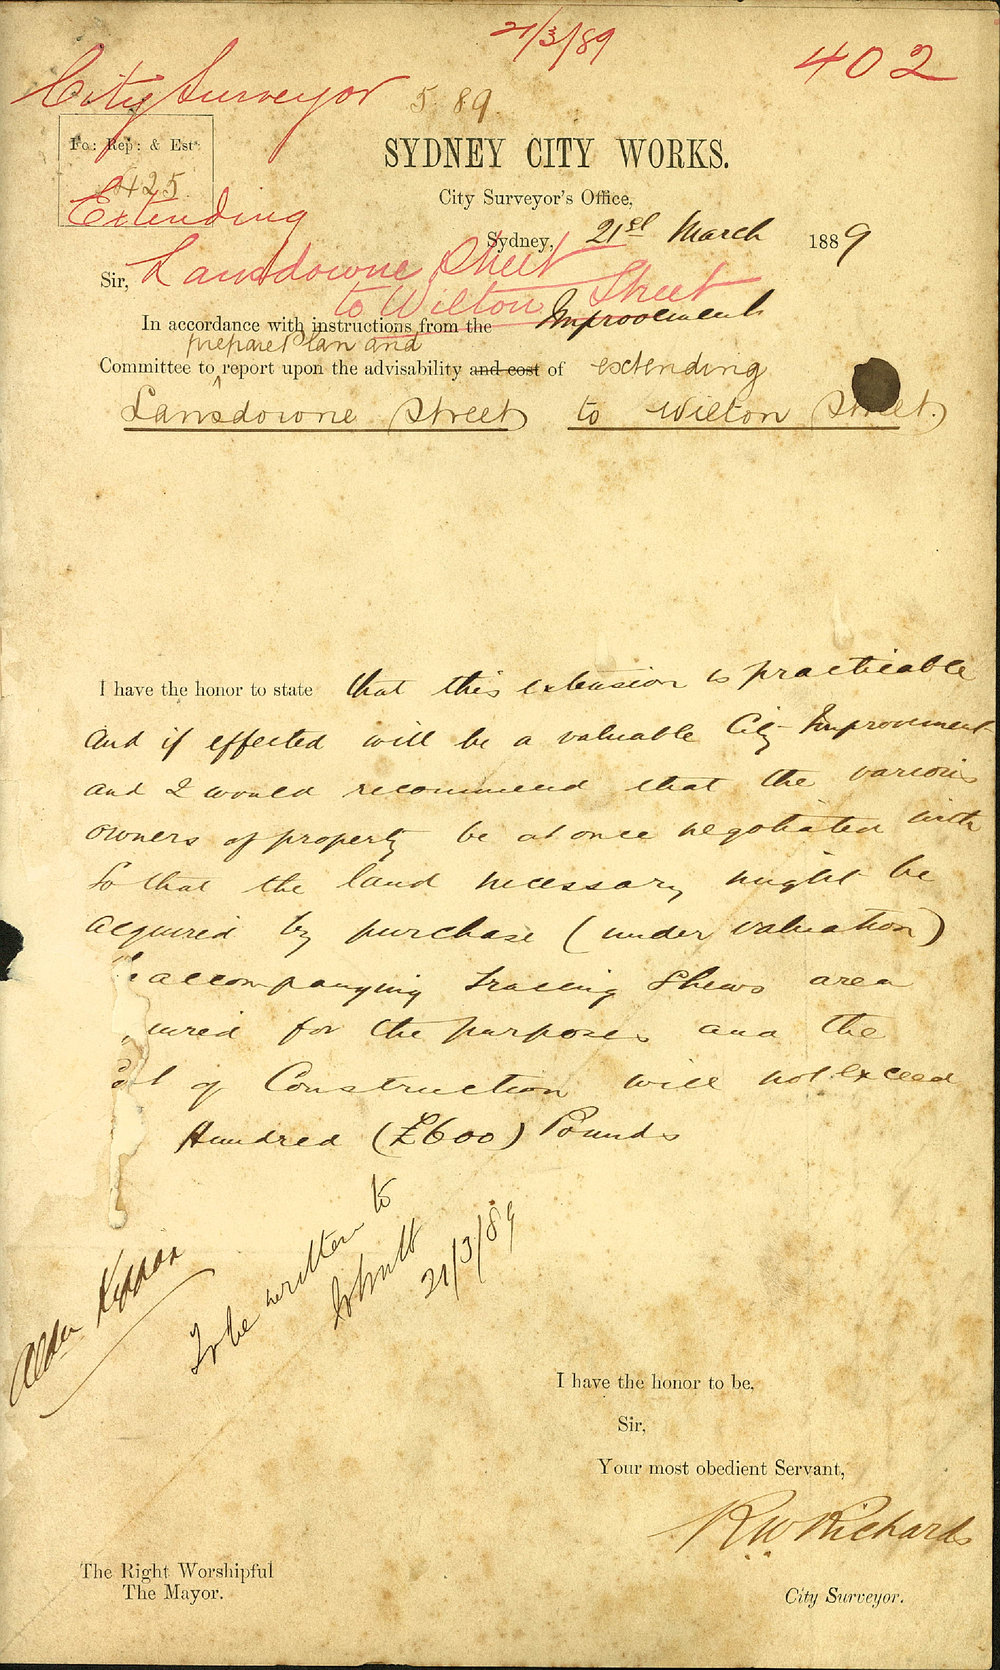 21/3/89
402
City Surveyor
5 89
Fo: Rep: & Est:
425
SYDNEY CITY WORKS.
City Surveyor's Office,
Extending
Sydney, 21st March 1889
Sir, Lansdowne Street
to Wilton Street
In accordance with instructions from the Improvement
prepare Plan and
Committee to ^ report upon the advisability and cost of extending
Lansdowne Street to Wilton Street.
I have the honor to state that this extension is practicable
and if effected will be a valuable City Improvement
and I would recommend that the various
owners of property be at once negotiated with
So that the land necessary might be
acquired by purchase (under valuation)
accompanying tracing Shews area
uired for the purpose and the
st of Construction will not exceed
Hundred (£600) Pounds
Alder Kippax
To be written to
21/3/89
I have the honor to be,
Sir,
Your most obedient Servant,
R W Richards
The Right Worshipful
The Mayor.
City Surveyor.